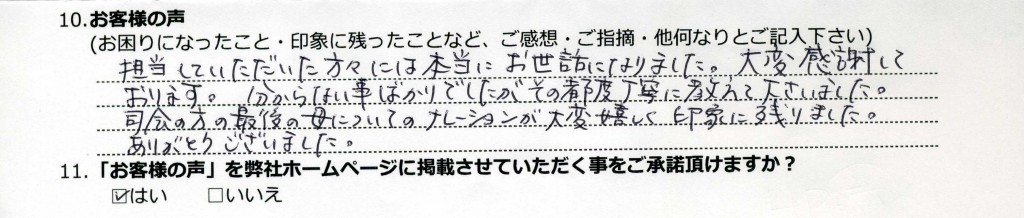 10.お客様の声
(お困りになったこと・印象に残ったことなど、ご感想・ご指摘・他何なりとご記入下さい)
担当していただいた方々には本当にお世話になりました。大変感謝して
おります。分からない事ばかりでしたがその都度丁寧に教えて下さいました。
司会の方の最後の母についてのナレーションが大変嬉しく印象に残りました。
ありがとうございました。
11.「お客様の声」を弊社ホームページに掲載させていただく事をご承諾頂けますか？
☑はい □いいえ